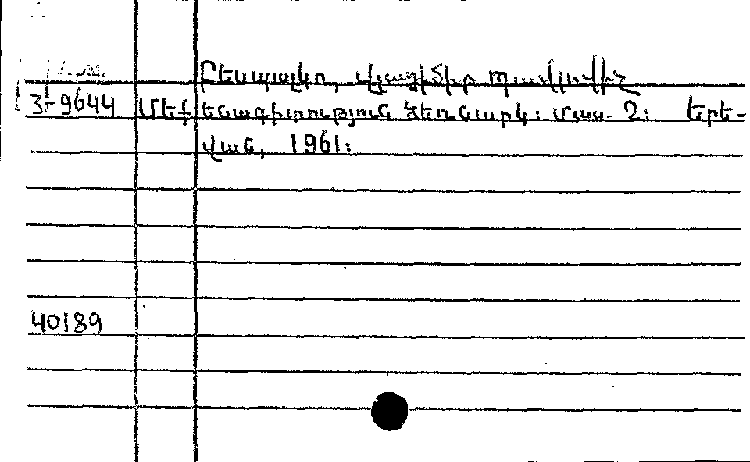 Բեսպալկո, Վլադիմիր Պավլովիչ
3-9644 Մեքենագիտություն Ձեռնարկ: Մաս. 2: Երե-
վան, 1961:
40189